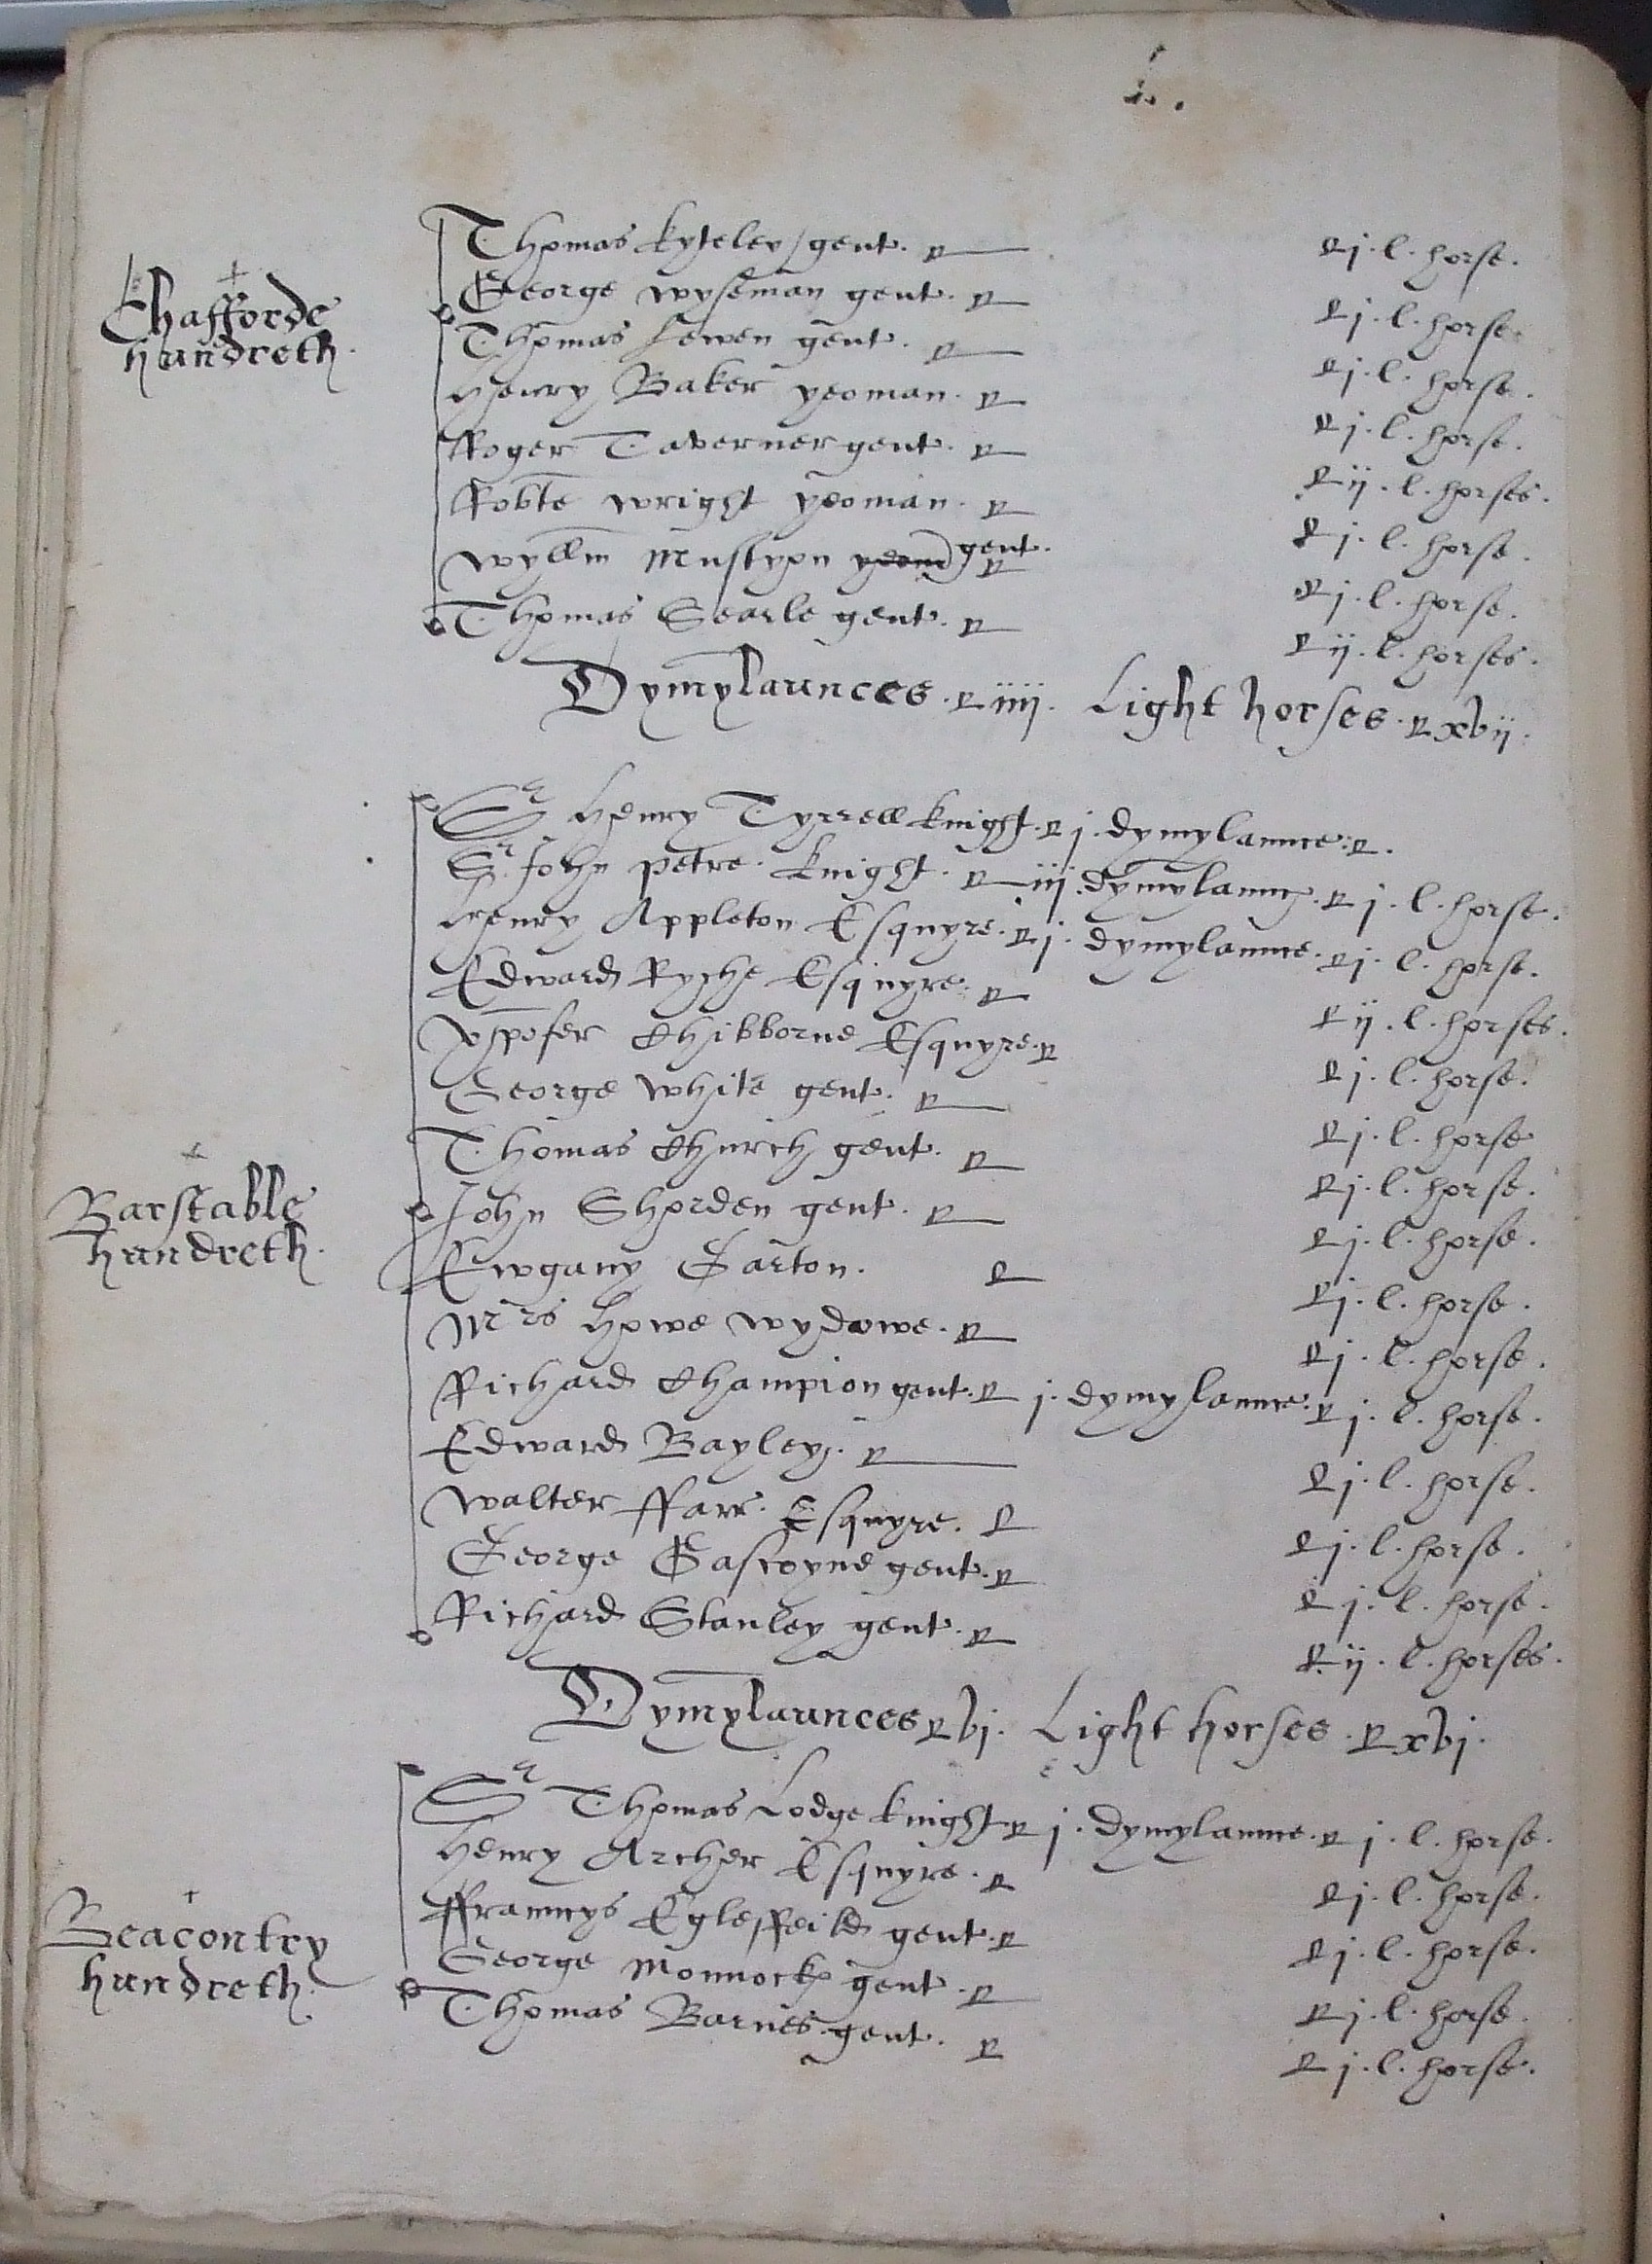 Chafforde
hundreth.
Thomas kyteley gent. j. l. horse.
George wyseman gent. j. l. horse.
Thomas Lewen gent. j. l. horse.
Henry Baker yeoman. j. l. horse.
Roger Taverner gent. ij. l. horses.
Robte wright yeoman. j. l. horse.
wyllm Mustyan yeom gent. j. l. horse.
Thomas Searle gent. ij. l. horses.
Dymylaunces. iiij. Light horses. xvij.
Barstable
hundreth.
Sr Henry Tyrrell knight. j. dymylaunce.
Sr John Petre knight. iij. dymylaunc. j. l. horse.
Henry Appleton Esquyre. j. dymylaunce. j. l. horse.
Edward Ryche Esquyre. ij. l. horses.
Xpofer Chibborne Esquyre. j. l. horse.
George White gent. j. l. horse
Thomas Church gent. j. l. horse.
John Shorden gent. j. l. horse.
Ewgany Garton. j. l. horse.
Mrs Howe wydowe. j. l. horse.
Richard Champion gent. j. dymylaunce. j. l. horse.
Edward Bayley. j. l. horse.
Walter ffarr. Esquyre. j. l. horse.
George Gascoyne gent. j. l. horse.
Richard Stanley gent. ij. l. horses.
Dymylaunces vj. Light horses. xvj.
Beacontry
hundreth.
Sr Thomas Lodge knight j. dymylaunce. j. l. horse.
Henry Archer Esquyre. j. l. horse.
ffrauncys Egleffeild gent. j. l. horse.
George Monnock gent. j. l. horse.
Thomas Barnes gent. j. l. horse.